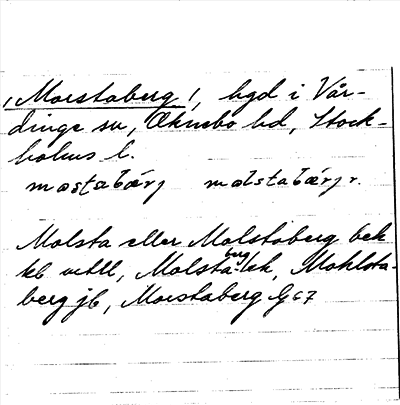 , Morstaberg!, hgd i Vår-
dinge sn, Öknebo hd, Stock-
holms l.
mastabärj malstabärj r.
Molsta eller Molstaberg bek
kb mtll, Molsta-berg-ek, Mohlsta-
berg jb, Morstaberg G 67